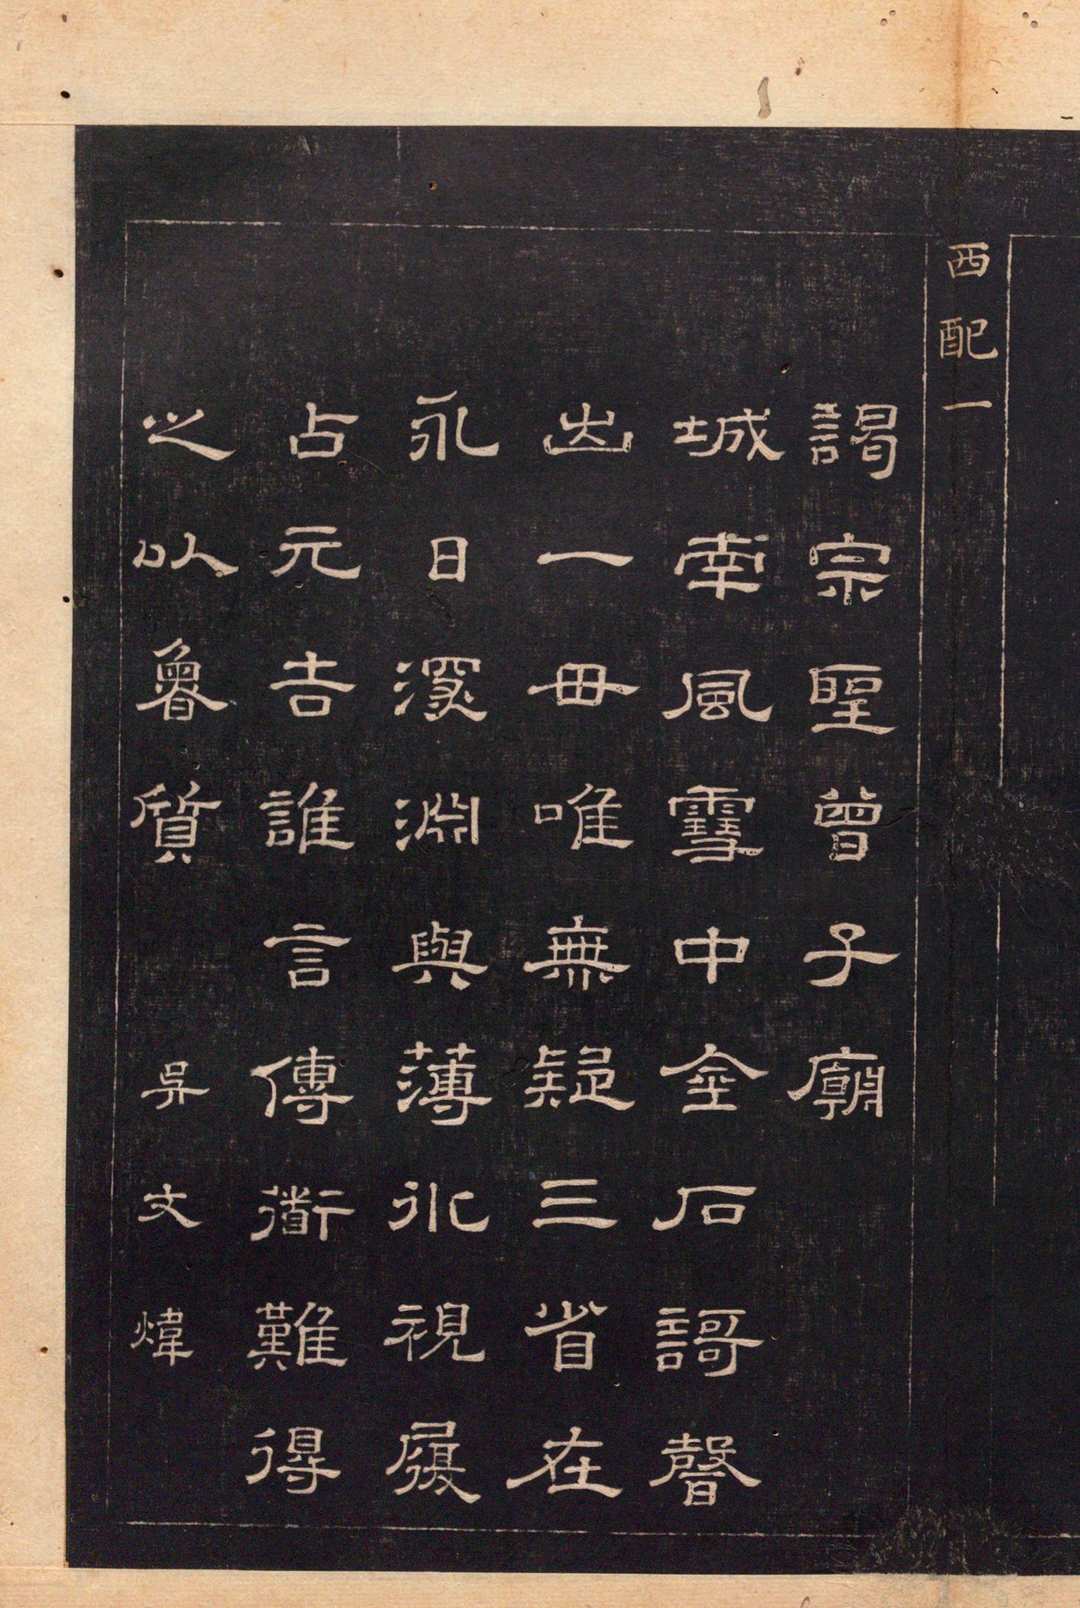 西配一
謁宗聖曾子廟
城南風雪中金石謌聲
出一毌唯無疑三省在
永日深淵與薄冰視履
占元吉誰言傳衜難得
之以魯質 吳文煒